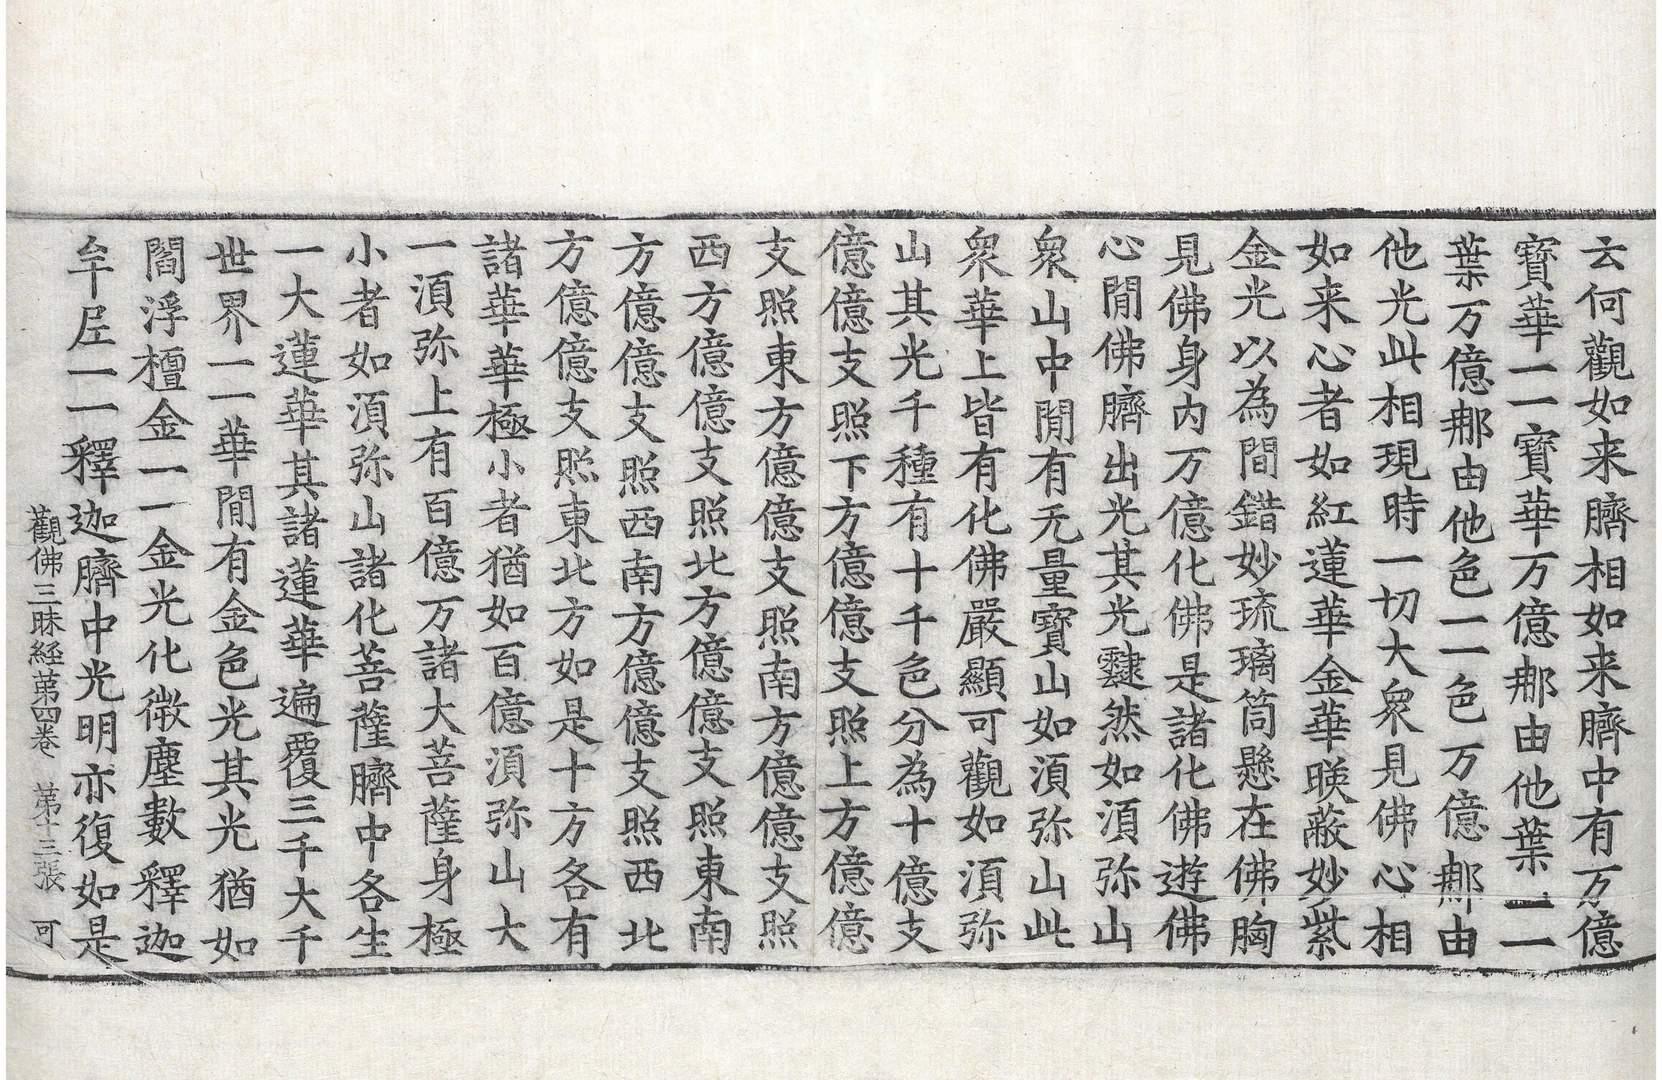 云何觀如来臍相如来臍中有万億
寶華一一寶華万億那由他葉一一
葉万億那由他色一一色万億那由
他光此相現時一切大衆見佛心相
如来心者如紅蓮華金華暎蔽妙紫
金光以為間錯妙琉璃筒懸在佛胸
見佛身内万億化佛是諸化佛遊佛
心閒佛臍出光其光靆然如湏弥山
衆山中閒有无量寶山如湏弥山此
衆華上皆有化佛嚴顯可觀如湏弥
山其光千種有十千色分為十億支
億億支照下方億億支照上方億億
支照東方億億支照南方億億支照
西方億億支照北方億億支照東南
方億億支照西南方億億支照西北
方億億支照東北方如是十方各有
諸華華極小者猶如百億湏弥山大
一湏弥上有百億万諸大菩薩身極
小者如湏弥山諸化菩薩臍中各生
一大蓮華其諸蓮華遍覆三千大千
世界一一華閒有金色光其光猶如
閻浮檀金一一金光化微塵數釋迦
牟𡰱一一釋迦臍中光明亦復如是
觀佛三昧経苐四卷 苐十三張 可